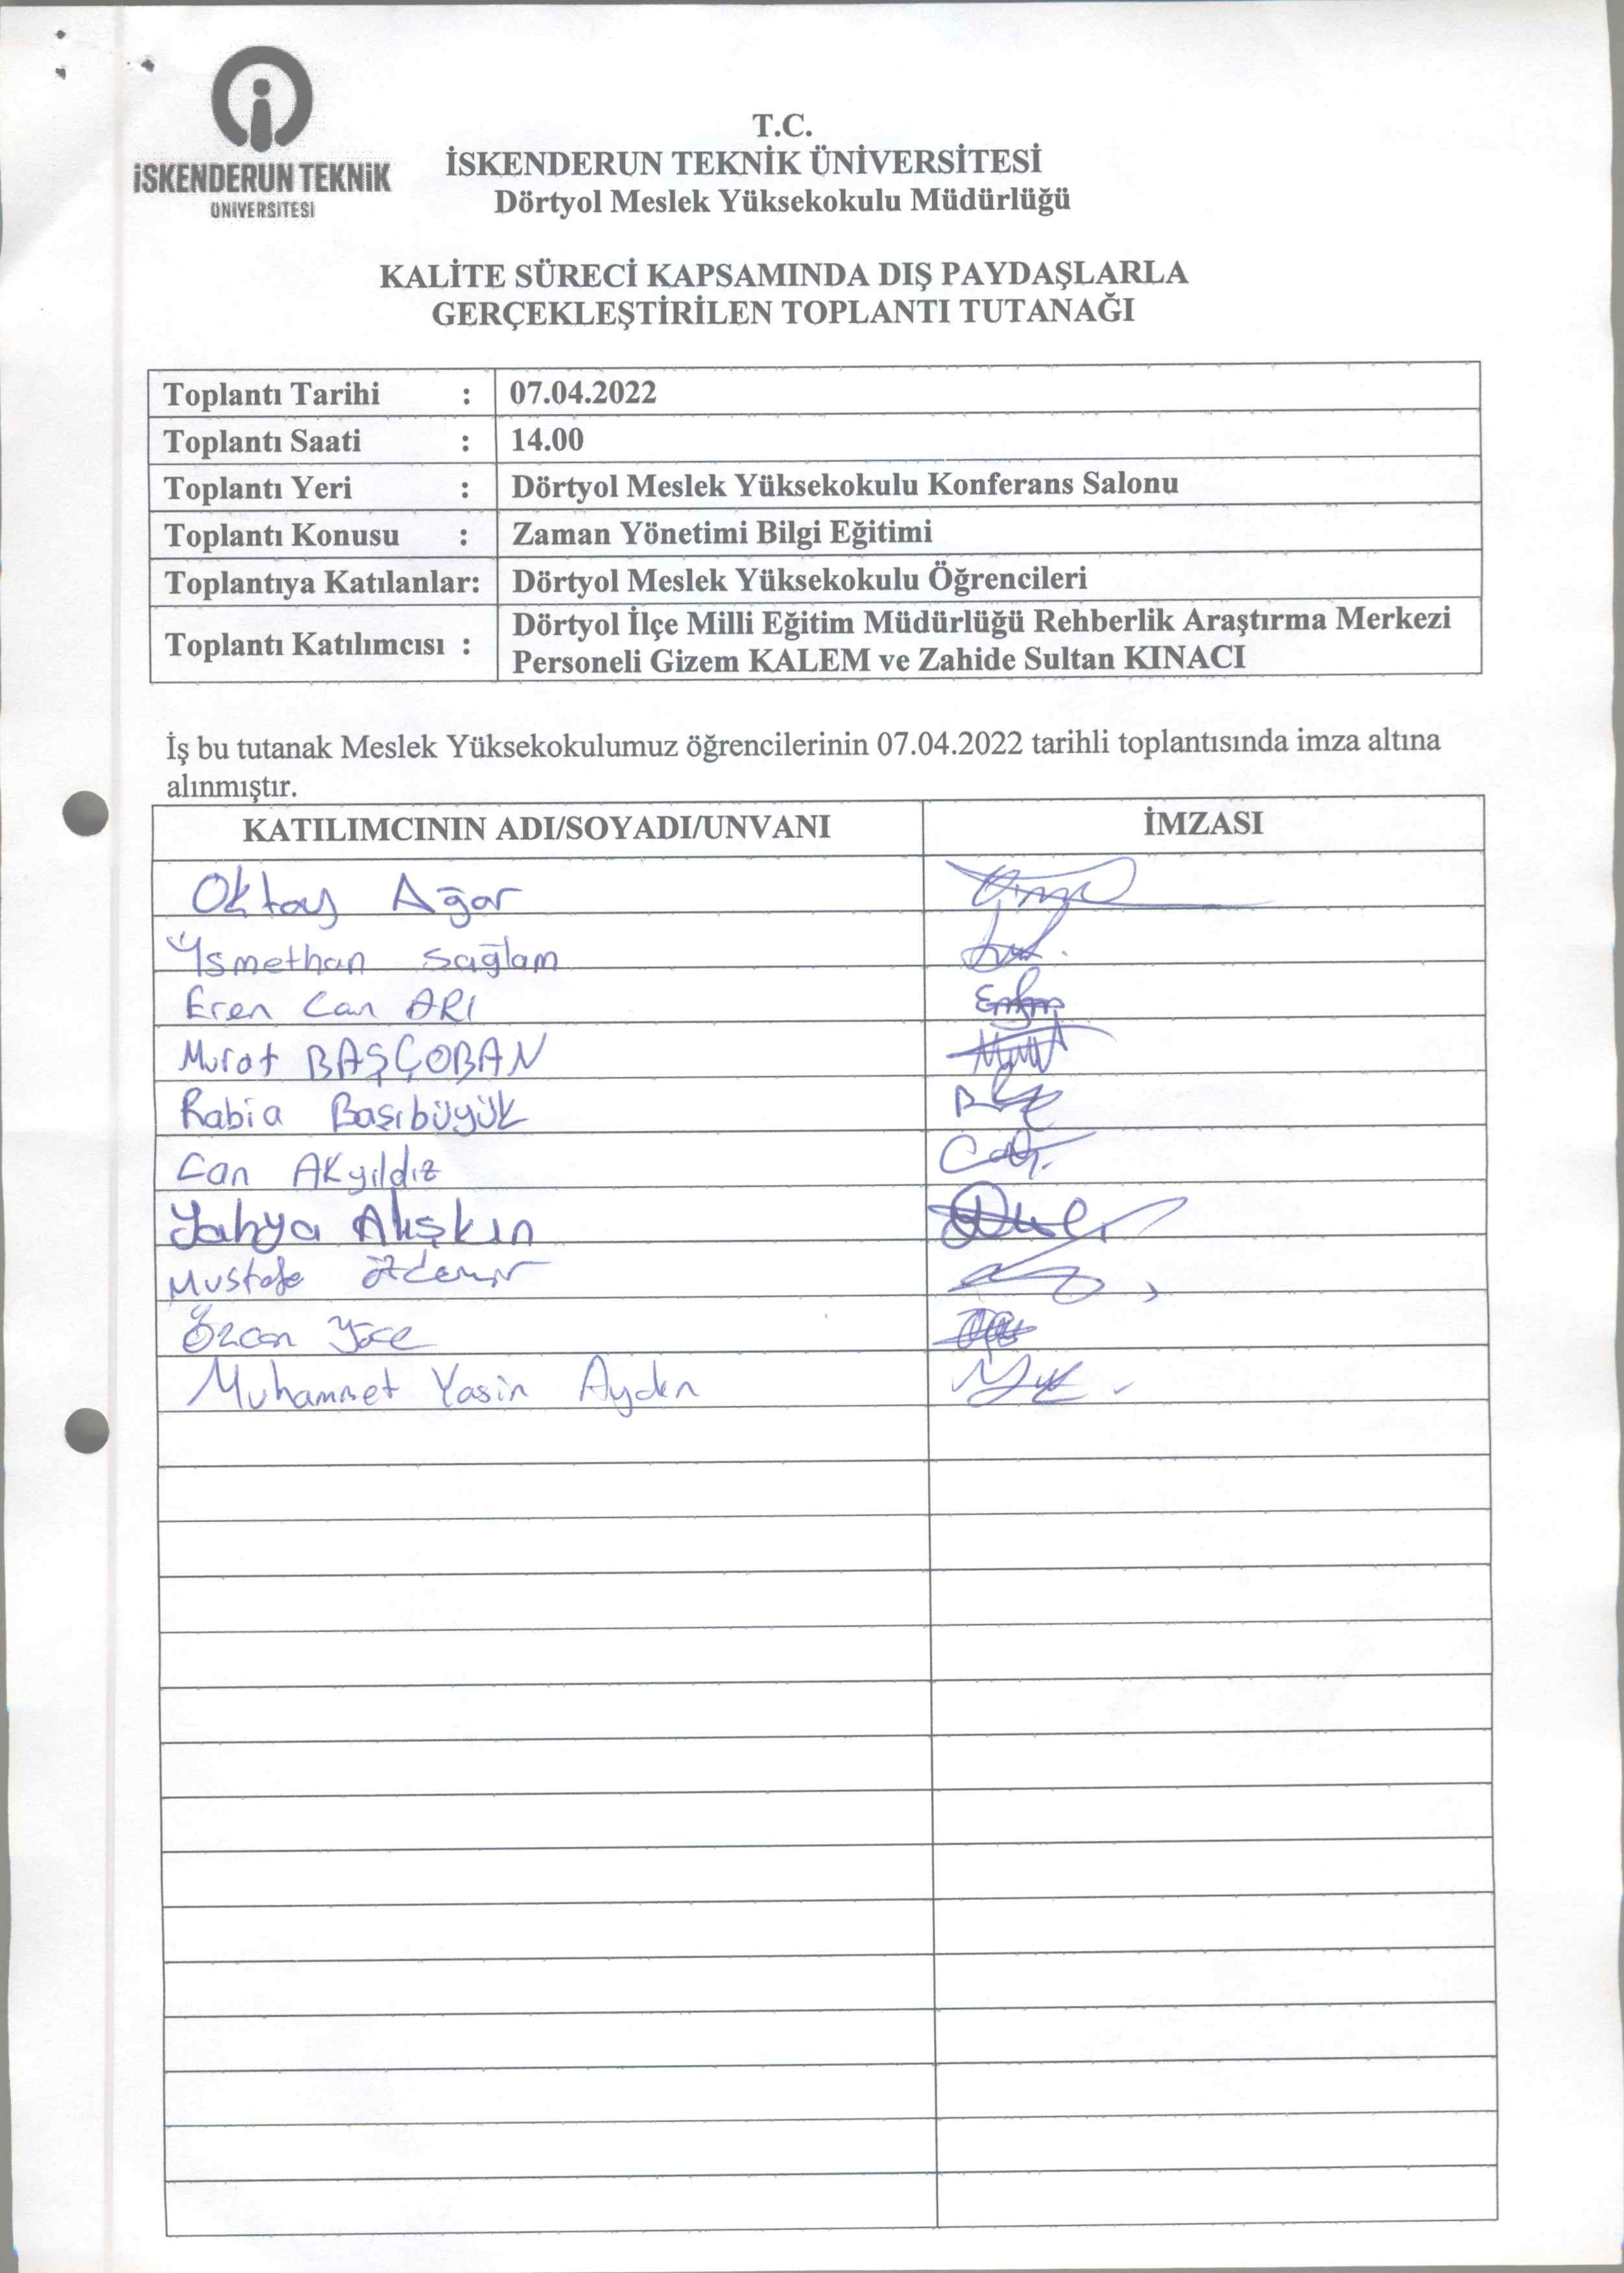 İSKENDERUN TEKNİK
ÜNİVERSİTESİ
T.C.
İSKENDERUN TEKNİK ÜNİVERSİTESİ
Dörtyol Meslek Yüksekokulu Müdürlüğü
KALİTE SÜRECİ KAPSAMINDA DIŞ PAYDAŞLARLA
GERÇEKLEŞTİRİLEN TOPLANTI TUTANAĞI
Toplantı Tarihi : 07.04.2022
Toplantı Saati : 14.00
Toplantı Yeri : Dörtyol Meslek Yüksekokulu Konferans Salonu
Toplantı Konusu : Zaman Yönetimi Bilgi Eğitimi
Toplantıya Katılanlar: Dörtyol Meslek Yüksekokulu Öğrencileri
Toplantı Katılımcısı : Dörtyol İlçe Milli Eğitim Müdürlüğü Rehberlik Araştırma Merkezi
Personeli Gizem KALEM ve Zahide Sultan KINACI
İş bu tutanak Meslek Yüksekokulumuz öğrencilerinin 07.04.2022 tarihli toplantısında imza altına
alınmıştır.
KATILIMCININ ADI/SOYADI/UNVANI İMZASI
Oktay Ağar
İsmethan Sağlam
Eren Can ARI
Murat BAŞÇOBAN
Rabia Başıbüyük
Can Akyıldız
Yahya Alışkın
Mustafa
Özcan
Muhammet Yasin Aydın